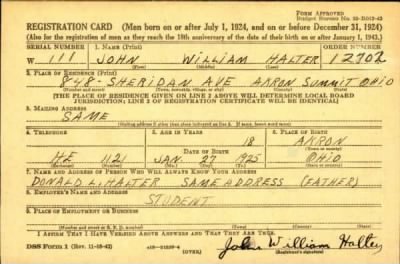 FORM APPROVED
REGISTRATION CARD (Men born on or after July 1, 1924, and on or before December 31, 1924)
(Also for the registration of men as they reach the 18th anniversary of the date of their birth on or after January 1, 1943.)
SERIAL NUMBER 1. NAME (Print) ORDER NUMBER
W 111 JOHN WILLIAM HALTER 12702
(First) (Middle) (Last)
2. PLACE OF RESIDENCE (Print)
848 - SHERIDAN AVE AKRON SUMMIT OHIO
(Number and street) (Town, township, village, or city) (County) (State)
[THE PLACE OF RESIDENCE GIVEN ON LINE 2 ABOVE WILL DETERMINE LOCAL BOARD
JURISDICTION; LINE 2 OF REGISTRATION CERTIFICATE WILL BE IDENTICAL]
3. MAILING ADDRESS
SAME
(Mailing address if other than place indicated on line 2. If same, insert word same)
4. TELEPHONE 5. AGE IN YEARS 6. PLACE OF BIRTH
18 AKRON
DATE OF BIRTH (Town or county)
HE 1121 JAN 27 1925 OHIO
(Exchange) (Number) (Mo.) (Day) (Yr.) (State or country)
7. NAME AND ADDRESS OF PERSON WHO WILL ALWAYS KNOW YOUR ADDRESS
DONALD L. HALTER SAME ADDRESS (FATHER)
8. EMPLOYER'S NAME AND ADDRESS
STUDENT
9. PLACE OF EMPLOYMENT OR BUSINESS
(Number and street or R. F. D. number) (Town) (County) (State)
I AFFIRM THAT I HAVE VERIFIED ABOVE ANSWERS AND THAT THEY ARE TRUE.
DSS Form 1 (Rev. 11-16-42) (OVER) John William Halter
(Registrant's signature)